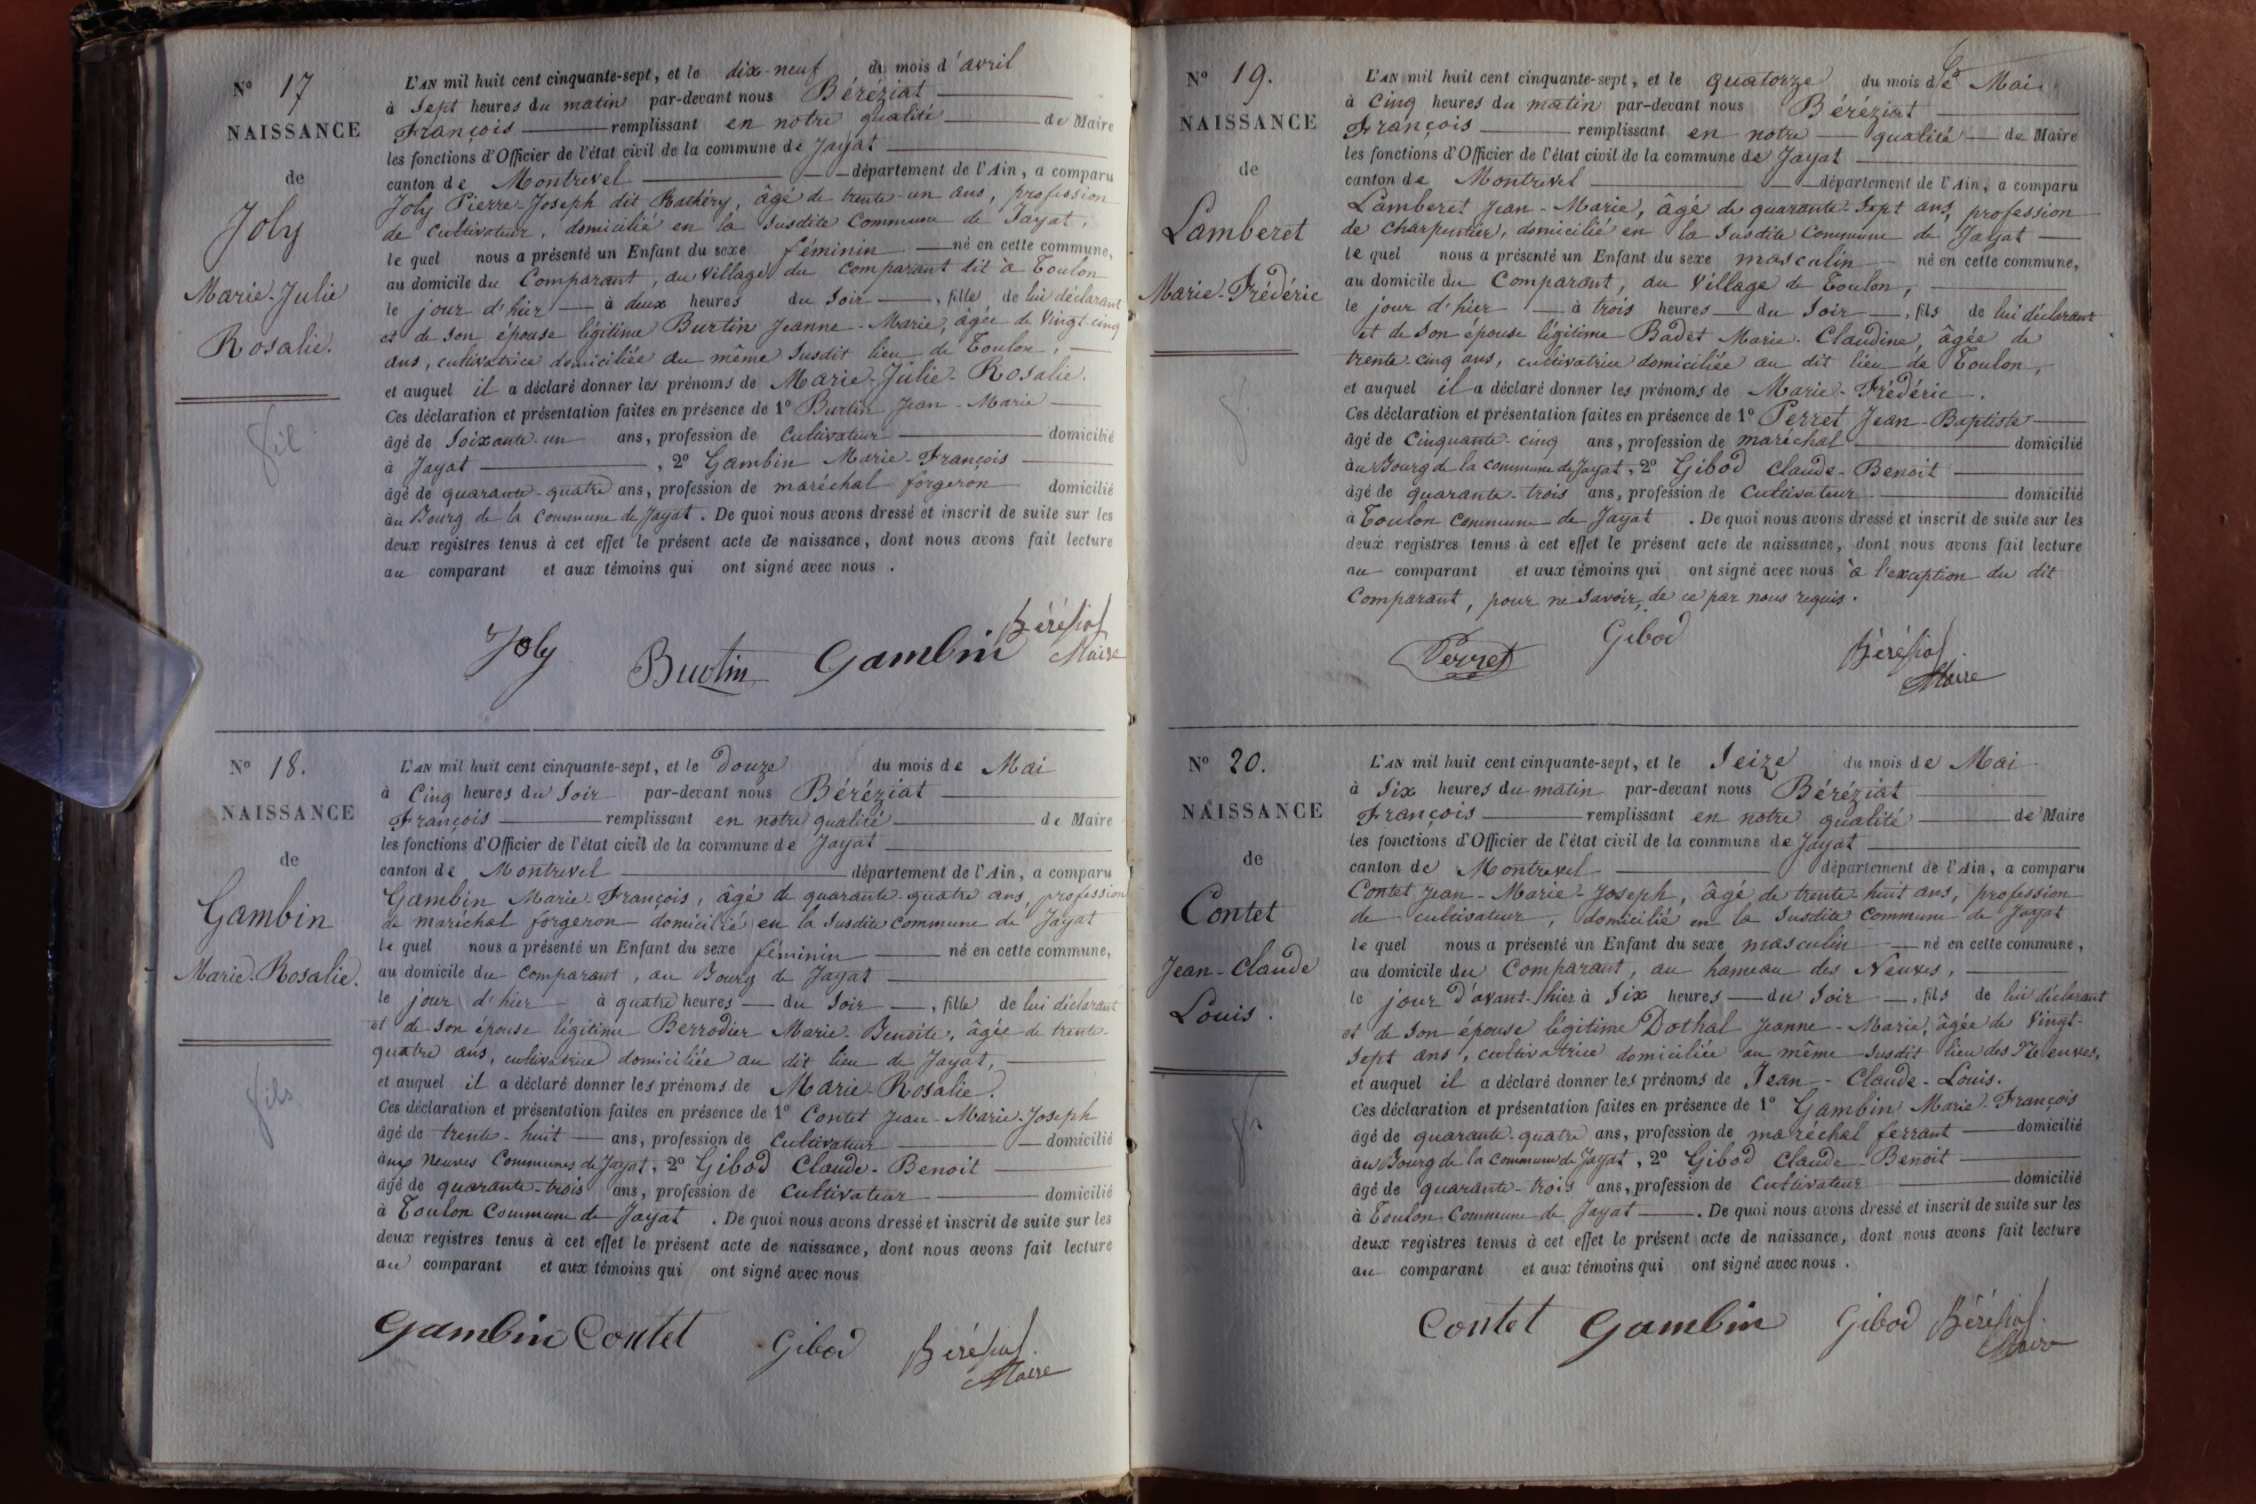 N° 17
NAISSANCE
de
Joly
Marie-Julie
Rosalie.
L'AN mil huit cent cinquante-sept, et le dix-neuf du mois d'avril
à Sept heures du matin par-devant nous Béréziat
François remplissant en notre qualité de Maire
les fonctions d'Officier de l'état civil de la commune de Jayat
canton de Montrevel département de l'Ain, a comparu
Joly Pierre-Joseph dit Bathéry, âgé de trente-un ans, profession
de cultivateur, domicilié en la susdite Commune de Jayat,
le quel nous a présenté un Enfant du sexe féminin né en cette commune,
au domicile du Comparant, au village du comparant dit à Toulon
le jour d'hier à deux heures du Soir, fille de lui déclarant
et de son épouse légitime Burtin Jeanne-Marie, âgée de vingt-cinq
ans, cultivatrice domiciliée au même susdit lieu de Toulon,
et auquel il a déclaré donner les prénoms de Marie-Julie-Rosalie.
Ces déclaration et présentation faites en présence de 1° Burtin Jean-Marie
âgé de Soixante-un ans, profession de Cultivateur domicilié
à Jayat, 2° Gambin Marie-François
âgé de quarante-quatre ans, profession de maréchal forgeron domicilié
au Bourg de la Commune de Jayat. De quoi nous avons dressé et inscrit de suite sur les
deux registres tenus à cet effet le présent acte de naissance, dont nous avons fait lecture
au comparant et aux témoins qui ont signé avec nous.
Joly Burtin Gambin Béréziat
Maire
N° 18.
NAISSANCE
de
Gambin
Marie-Rosalie.
L'AN mil huit cent cinquante-sept, et le douze du mois de Mai
à Cinq heures du Soir par-devant nous Béréziat
François remplissant en notre qualité de Maire
les fonctions d'Officier de l'état civil de la commune de Jayat
canton de Montrevel département de l'Ain, a comparu
Gambin Marie-François, âgé de quarante-quatre ans, profession
de maréchal forgeron domicilié en la susdite commune de Jayat
le quel nous a présenté un Enfant du sexe féminin né en cette commune,
au domicile du Comparant, au Bourg de Jayat
le jour d'hier à quatre heures du Soir, fille de lui déclarant
et de son épouse légitime Berrodier Marie-Benoite, âgée de trente-
quatre ans, cultivatrice domiciliée au dit lieu de Jayat,
et auquel il a déclaré donner les prénoms de Marie-Rosalie.
Ces déclaration et présentation faites en présence de 1° Contet Jean-Marie-Joseph
âgé de trente-huit ans, profession de Cultivateur domicilié
aux Neuves Communes de Jayat, 2° Gibod Claude-Benoit
âgé de quarante-trois ans, profession de Cultivateur domicilié
à Toulon Commune de Jayat. De quoi nous avons dressé et inscrit de suite sur les
deux registres tenus à cet effet le présent acte de naissance, dont nous avons fait lecture
au comparant et aux témoins qui ont signé avec nous
Gambin Contet Gibod Béréziat
Maire
N° 19.
NAISSANCE
de
Lamberet
Marie-Frédéric
L'AN mil huit cent cinquante-sept, et le quatorze du mois de Mai
à Cinq heures du matin par-devant nous Béréziat
François remplissant en notre qualité de Maire
les fonctions d'Officier de l'état civil de la commune de Jayat
canton de Montrevel département de l'Ain, a comparu
Lamberet Jean-Marie, âgé de quarante-Sept ans, profession
de charpentier, domicilié en la susdite Commune de Jayat
le quel nous a présenté un Enfant du sexe masculin né en cette commune,
au domicile du Comparant, au Village de Toulon,
le jour d'hier à trois heures du Soir, fils de lui déclarant
et de son épouse légitime Badet Marie-Claudine, âgée de
trente-cinq ans, cultivatrice domiciliée au dit lieu de Toulon,
et auquel il a déclaré donner les prénoms de Marie-Frédéric.
Ces déclaration et présentation faites en présence de 1° Perret Jean-Baptiste
âgé de Cinquante-cinq ans, profession de maréchal domicilié
au Bourg de la commune de Jayat, 2° Gibod Claude-Benoit
âgé de quarante-trois ans, profession de Cultivateur domicilié
à Toulon commune de Jayat. De quoi nous avons dressé et inscrit de suite sur les
deux registres tenus à cet effet le présent acte de naissance, dont nous avons fait lecture
au comparant et aux témoins qui ont signé avec nous à l'exception du dit
Comparant, pour ne savoir, de ce par nous requis.
Perret Gibod Béréziat
Maire
N° 20.
NAISSANCE
de
Contet
Jean-Claude
Louis.
L'AN mil huit cent cinquante-sept, et le Seize du mois de Mai
à Six heures du matin par-devant nous Béréziat
François remplissant en notre qualité de Maire
les fonctions d'Officier de l'état civil de la commune de Jayat
canton de Montrevel département de l'Ain, a comparu
Contet Jean-Marie-Joseph, âgé de trente-huit ans, profession
de cultivateur, domicilié en la susdite commune de Jayat
le quel nous a présenté un Enfant du sexe masculin né en cette commune,
au domicile du Comparant, au hameau des Neuves,
le jour d'avant-hier à Six heures du Soir, fils de lui déclarant
et de son épouse légitime Dothal Jeanne-Marie, âgée de Vingt-
Sept ans, cultivatrice domiciliée au même susdit lieu des Neuves,
et auquel il a déclaré donner les prénoms de Jean-Claude-Louis.
Ces déclaration et présentation faites en présence de 1° Gambin Marie-François
âgé de quarante-quatre ans, profession de maréchal ferrant domicilié
au Bourg de la commune de Jayat, 2° Gibod Claude-Benoit
âgé de quarante-trois ans, profession de Cultivateur domicilié
à Toulon Commune de Jayat. De quoi nous avons dressé et inscrit de suite sur les
deux registres tenus à cet effet le présent acte de naissance, dont nous avons fait lecture
au comparant et aux témoins qui ont signé avec nous.
Contet Gambin Gibod Béréziat
Maire